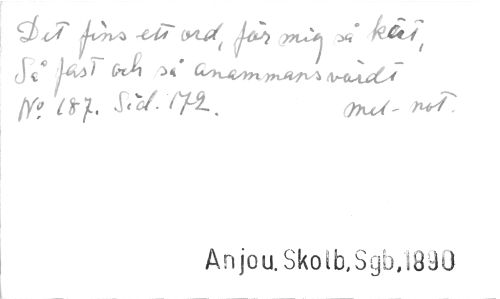 Det fins ett ord, för mig så kärt,
Så fast och så anammans värdt
No. 187. Sid. 172. mel-not.
Anjou. Skolb. Sgb. 1890